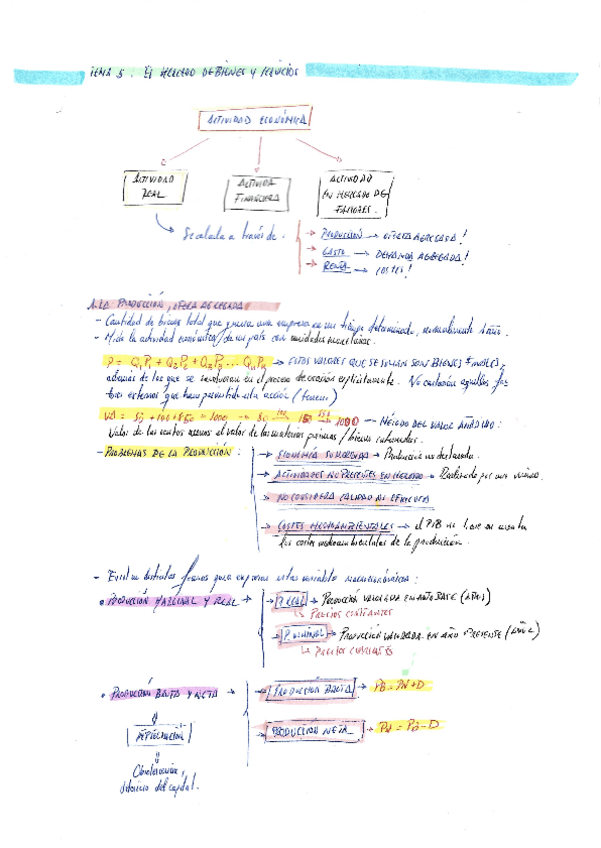 TEMA 5: El MERCADO DE BIENES Y SERVICIOS
ACTIVIDAD ECONÓMICA
ACTIVIDAD REAL
ACTIVIDAD FINANCIERA
ACTIVIDAD EN MERCADO DE FACTORES.
Se calcula a través de.
→ PRODUCCIÓN → OFERTA AGREGADA!
→ GASTO → DEMANDA AGREGADA!
→ RENTA → COSTES!
1. LA PRODUCCIÓN, OFERTA AGREGADA
- Cantidad de bienes total que genera una empresa en un tiempo determinado, normalmente 1 año.
- Mide la actividad económica de un país con unidades monetarias.
P = Q1P1 + Q2P2 + Q3P3 ... QnPn → ESTOS VALORES QUE SE SUMAN SON BIENES
además de los que se en el proceso de explícitamente. No aquellos
externos que han permitido esta acción
1000 → 1000 → MÉTODO DEL VALOR AÑADIDO:
Valor de las ventas menos el valor de las materias primas / bienes intermedios.
- PROBLEMAS DE LA PRODUCCIÓN:
→ ECONOMÍA SUMERGIDA → Producción no declarada.
→ ACTIVIDADES NO PRESENTES EN MERCADO → Realizado por uno mismo.
→ NO CONSIDERA CALIDAD NI
→ COSTES MEDIOAMBIENTALES → el PIB no tiene en cuenta
los costes medioambientales de la producción.
- Existen distintas formas para expresar estas variables macroeconómicas:
• PRODUCCIÓN Y REAL
→ P. REAL → PRODUCCIÓN VALORADA EN AÑO BASE
↳ PRECIOS CONSTANTES
→ P. NOMINAL → PRODUCCIÓN VALORADA EN AÑO PRESENTE
↳ PRECIOS CORRIENTES
• PRODUCCIÓN BRUTA Y NETA
→ PRODUCCIÓN BRUTA → PB = PN + D
DEPRECIACIÓN
→ PRODUCCIÓN NETA → PN = PB - D
del capital.